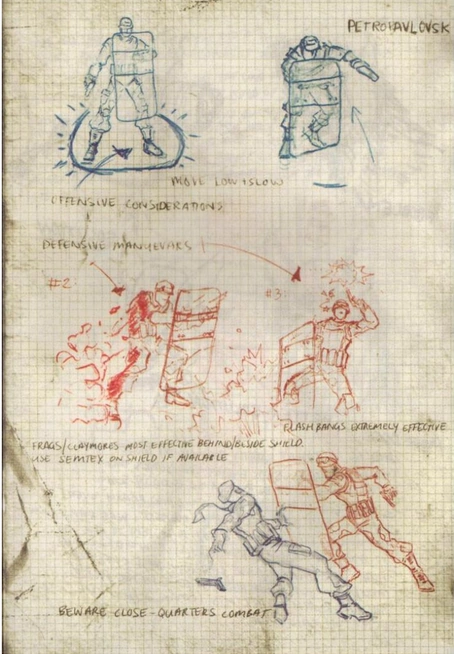 PETROPAVLOVSK
MOVE LOW + SLOW
OFFENSIVE CONSIDERATIONS
DEFENSIVE MANUEVARS
#2:
#3:
FLASHBANGS EXTREMELY EFFECTIVE
FRAGS/CLAYMORES MOST EFFECTIVE BEHIND/BESIDE SHIELD.
USE SEMTEX ON SHIELD IF AVAILABLE
BEWARE CLOSE-QUARTERS COMBAT